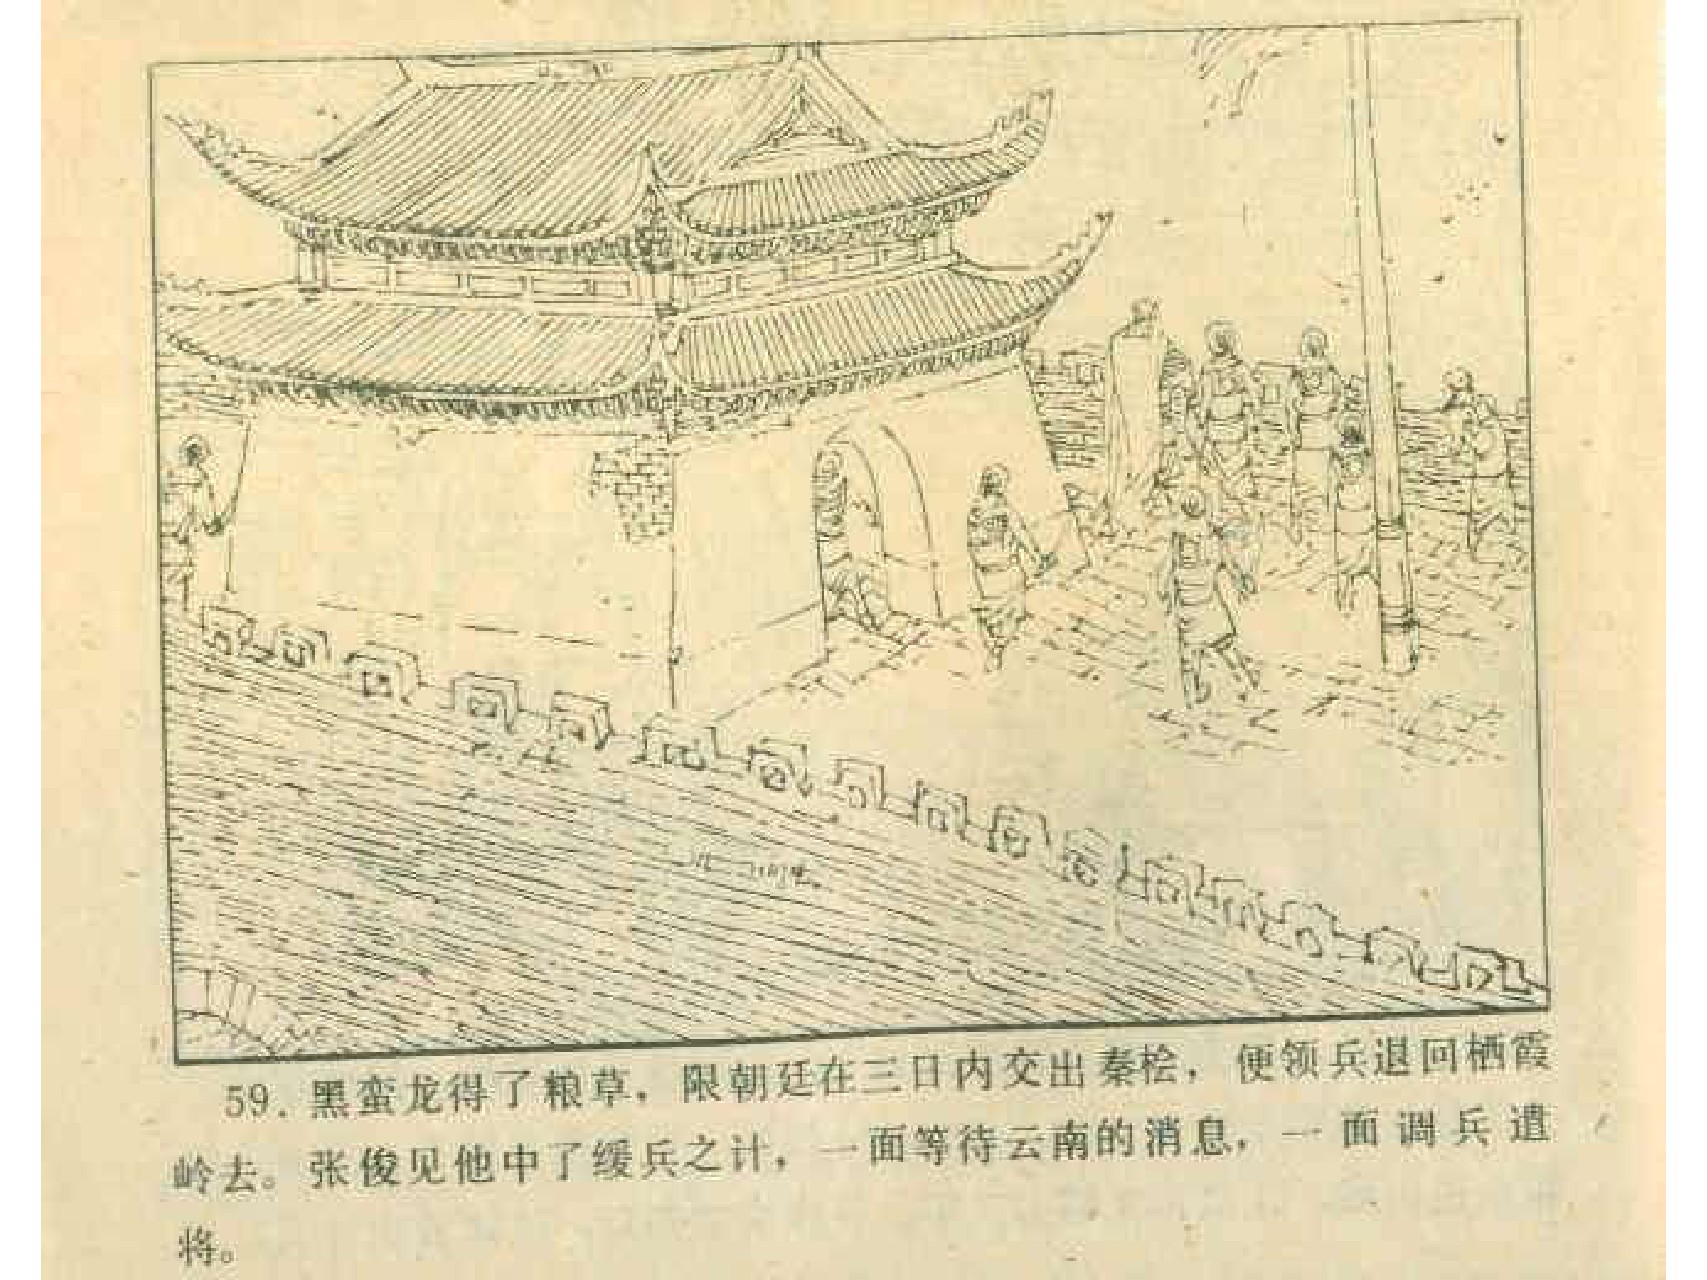 59. 黑蛮龙得了粮草，限朝廷在三日内交出秦桧，便领兵退回栖霞
岭去。张俊见他中了缓兵之计，一面等待云南的消息，一面调兵遣
将。